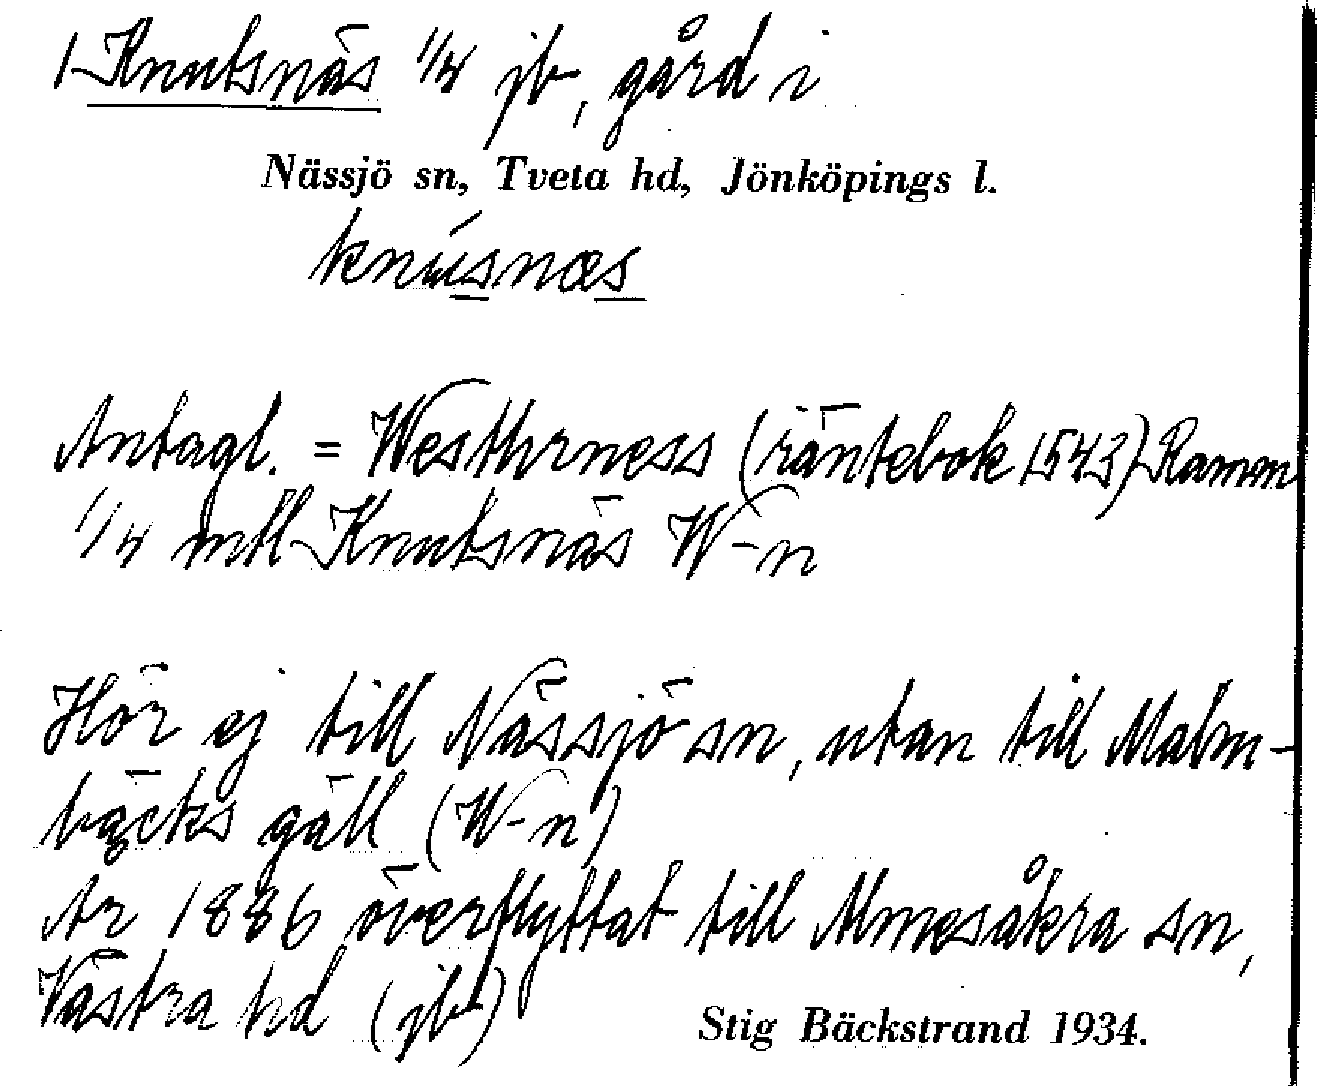 1 Knutsnäs 1/4 jb, gård i
Nässjö sn, Tveta hd, Jönköpings l.
knúsnæs
Antagl. = Westhrness (räntebok 1543) Ramm
1/4 mtl Knutsnäs W-n
Hör ej till Nässjö sn, utan till Malm-
bäcks gäll (W-n)
År 1886 överflyttat till Almesåkra sn,
Västra hd (jb)
Stig Bäckstrand 1934.